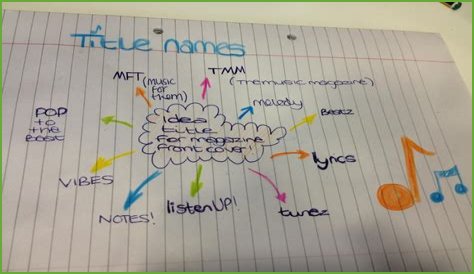 Title names
MFT
(music
for
them)
TMM
(Themusic magazine)
melody
Beatz
lyncs
tunez
listenUP!
NOTES!
VIBES
POP
to
the
Beat
Idea
title
for magazine
front cover!